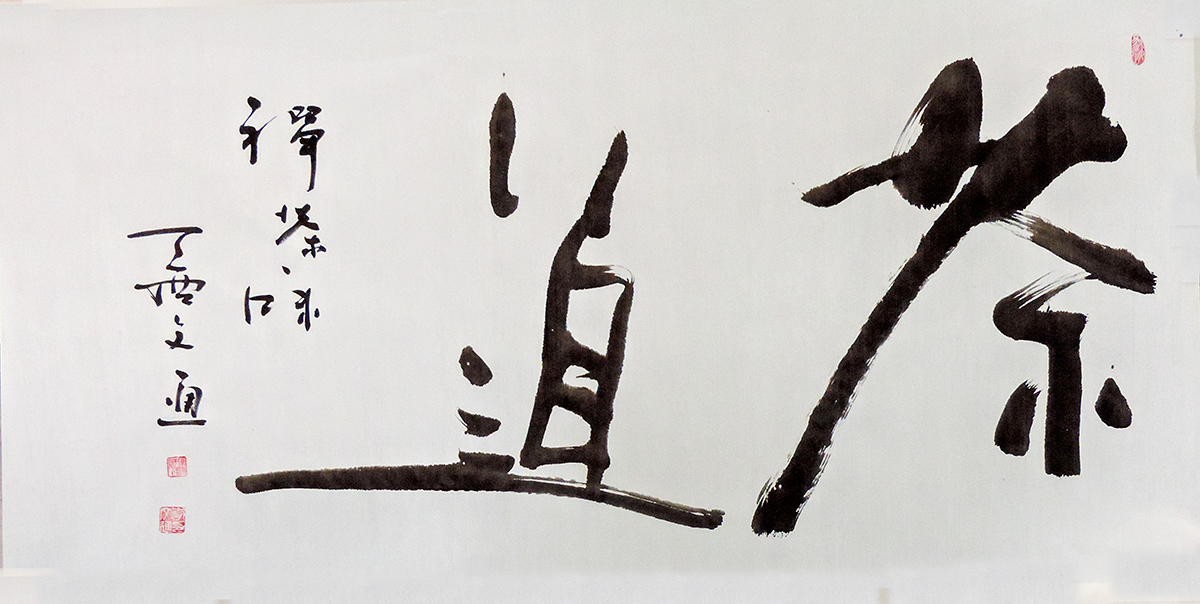 茶道
禪茶一味
丁酉文通